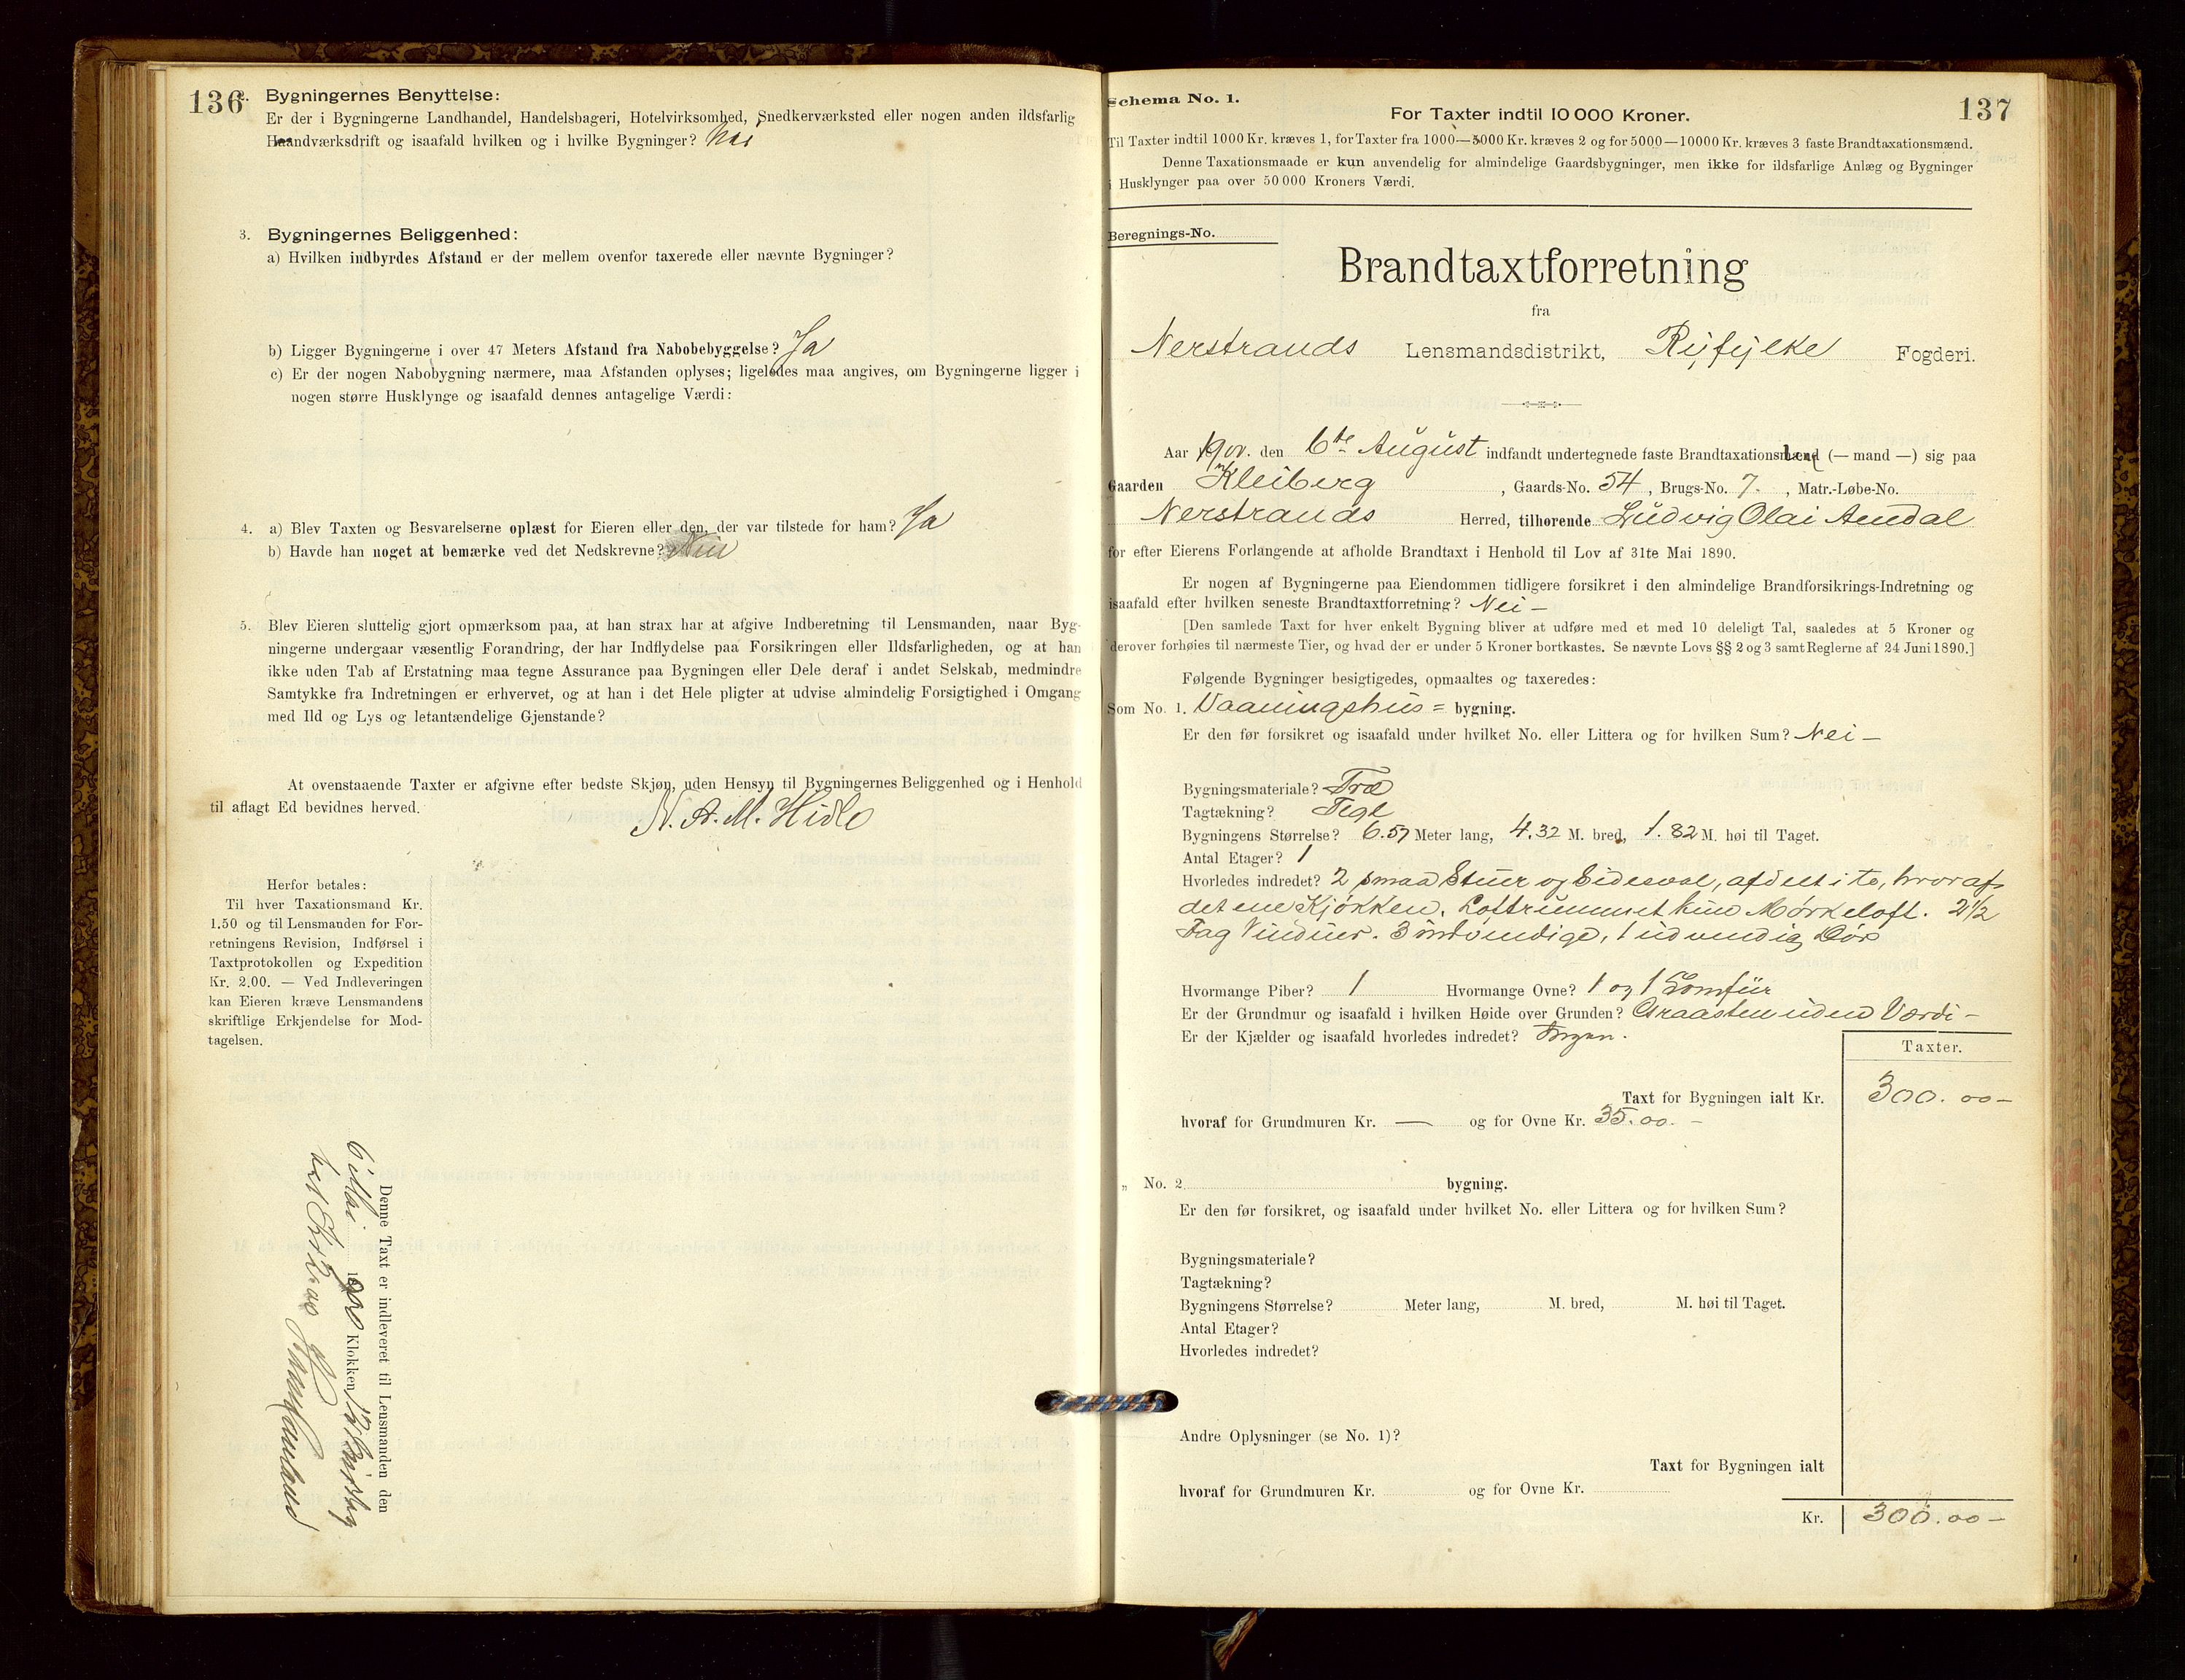 136
2. Bygningernes Benyttelse:
Er der i Bygningerne Landhandel, Handelsbageri, Hotelvirksomhed, Snedkerværksted eller nogen anden ildsfarlig
Haandværksdrift og isaafald hvilken og i hvilke Bygninger? Nei
3. Bygningernes Beliggenhed:
a) Hvilken indbyrdes Afstand er der mellem ovenfor taxerede eller nævnte Bygninger?
b) Ligger Bygningerne i over 47 Meters Afstand fra Nabobebyggelse? Ja
c) Er der nogen Nabobygning nærmere, maa Afstanden oplyses; ligeledes maa angives, om Bygningerne ligger i
nogen større Husklynge og isaafald dennes antagelige Værdi:
4. a) Blev Taxten og Besvarelserne oplæst for Eieren eller den, der var tilstede for ham? Ja
b) Havde han noget at bemærke ved det Nedskrevne? Nei
5. Blev Eieren sluttelig gjort opmærksom paa, at han strax har at afgive Indberetning til Lensmanden, naar Byg-
ningerne undergaar væsentlig Forandring, der har Indflydelse paa Forsikringen eller Ildsfarligheden, og at han
ikke uden Tab af Erstatning maa tegne Assurance paa Bygningen eller Dele deraf i andet Selskab, medmindre
Samtykke fra Indretningen er erhvervet, og at han i det Hele pligter at udvise almindelig Forsigtighed i Omgang
med Ild og Lys og letantændelige Gjenstande?
At ovenstaaende Taxter er afgivne efter bedste Skjøn, uden Hensyn til Bygningernes Beliggenhed og i Henhold
til aflagt Ed bevidnes herved.
N. A. M. Hidle
Herfor betales:
Til hver Taxationsmand Kr.
1.50 og til Lensmanden for For-
retningens Revision, Indførsel i
Taxtprotokollen og Expedition
Kr. 2.00. — Ved Indleveringen
kan Eieren kræve Lensmandens
skriftlige Erkjendelse for Mod-
tagelsen.
Denne Taxt er indleveret til Lensmanden den
1900 Klokken 12
Schema No. 1.
For Taxter indtil 10 000 Kroner.
137
Til Taxter indtil 1000 Kr. kræves 1, for Taxter fra 1000—5000 Kr. kræves 2 og for 5000—10000 Kr. kræves 3 faste Brandtaxationsmænd.
Denne Taxationsmaade er kun anvendelig for almindelige Gaardsbygninger, men ikke for ildsfarlige Anlæg og Bygninger
i Husklynger paa over 50 000 Kroners Værdi.
Beregnings-No.
Brandtaxtforretning
fra
Nerstrands Lensmandsdistrikt, Ryfylke Fogderi.
Aar 1900. den 6te August indfandt undertegnede faste Brandtaxationsmænd (— mand —) sig paa
Gaarden Kleiberg, Gaards-No. 54, Brugs-No. 7., Matr.-Løbe-No.
Nerstrands Herred, tilhørende Ludvig Olai Amdal
for efter Eierens Forlangende at afholde Brandtaxt i Henhold til Lov af 31te Mai 1890.
Er nogen af Bygningerne paa Eiendommen tidligere forsikret i den almindelige Brandforsikrings-Indretning og
isaafald efter hvilken seneste Brandtaxtforretning? Nei —
[Den samlede Taxt for hver enkelt Bygning bliver at udføre med et med 10 deleligt Tal, saaledes at 5 Kroner og
derover forhøies til nærmeste Tier, og hvad der er under 5 Kroner bortkastes. Se nævnte Lovs §§ 2 og 3 samt Reglerne af 24 Juni 1890.]
Følgende Bygninger besigtigedes, opmaaltes og taxeredes:
Som No. 1. Vaaningshus = bygning.
Er den før forsikret og isaafald under hvilket No. eller Littera og for hvilken Sum? Nei —
Bygningsmateriale? Træ
Tagtækning? Tegl
Bygningens Størrelse? 6.57 Meter lang, 4.32 M. bred, 1.82 M. høi til Taget.
Antal Etager? 1
Hvorledes indredet? 2 smaa Stuer og Sidesval, afdelt i to, hvoraf
det ene Kjøkken. Loftrummet kun Mørkeloft. 2½
Fag Vinduer. 3 indvendige, 1 udvendig Dør
Hvormange Piber? 1 Hvormange Ovne? 1 og 1 Komfur
Er der Grundmur og isaafald i hvilken Høide over Grunden? Graasten uden Værdi —
Er der Kjælder og isaafald hvorledes indredet? Ingen.
Taxter.
Taxt for Bygningen ialt Kr. 300.00 —
hvoraf for Grundmuren Kr. — og for Ovne Kr. 35.00. —
„ No. 2 bygning.
Er den før forsikret, og isaafald under hvilket No. eller Littera og for hvilken Sum?
Bygningsmateriale?
Tagtækning?
Bygningens Størrelse? Meter lang, M. bred, M. høi til Taget.
Antal Etager?
Hvorledes indredet?
Andre Oplysninger (se No. 1)?
Taxt for Bygningen ialt
hvoraf for Grundmuren Kr. og for Ovne Kr.
Kr. 300.00 —